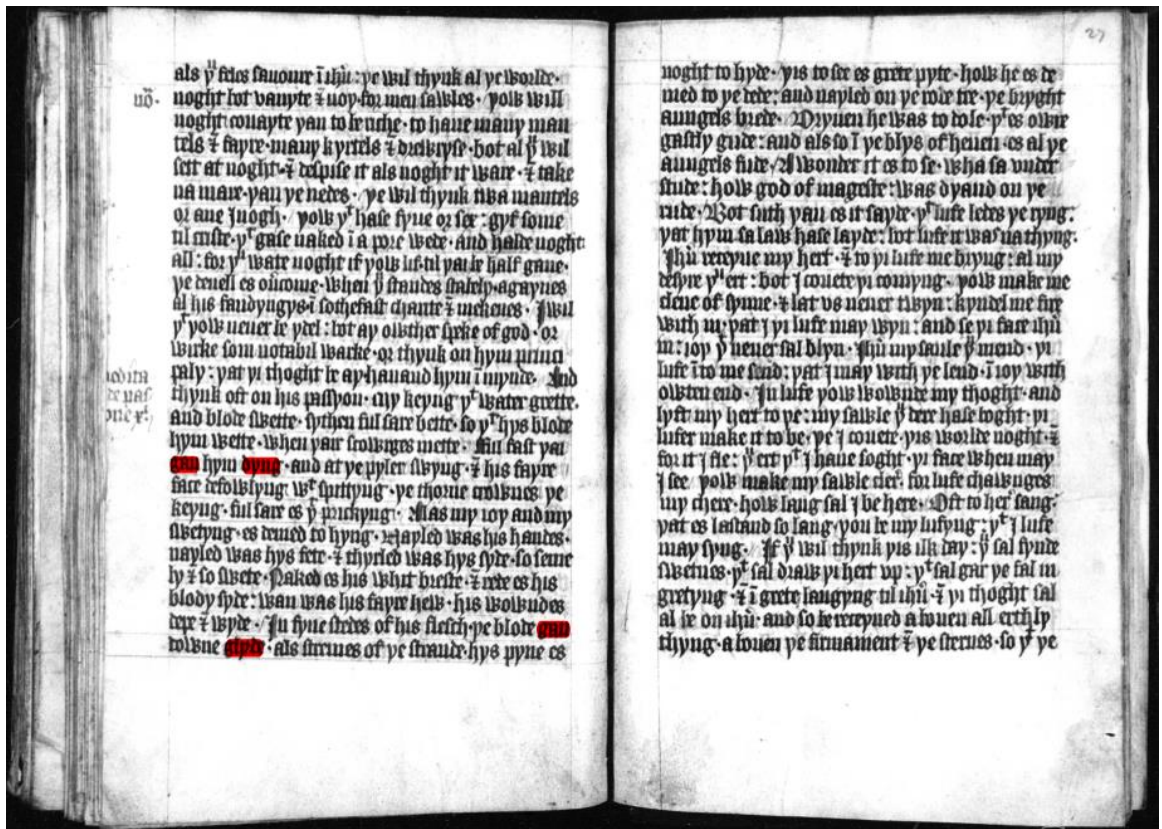 als yͧ feles sauoure ī ihū : ye wil thynk al ye worlde ·
nō · noght bot vanyte ⁊ noy · for men sawles · yow will
noght couayte yan to be riche · to haue many man
tels ⁊ fayre · many kyrtels ⁊ drewryse · bot al yͧ wil
sett at noght · ⁊ despise it als noght it ware · ⁊ take
na mare · yan ye nedes · ye wil thynk twa mantels
or ane Inogh · yow yᵗ hase fyue or sex : gyf some
til criste · yᵗ gase naked ī a pore wede · and halde noght
all : for yͧ wate noght if yow lif · til yai be half gane ·
ye deuell es ouͥcome · when yͧ standes stalely · agaynes
al his fandyngys · ī sothefast charite ⁊ mekenes · I wil
yᵗ yow neuer be ydel : bot ay owther speke of god · or
wirke som notabil warke · or thynk on hym princi
paly : yat yi thoght be ay · hauand hym ī mynde · And
thynk oft on his passyon · my keyng yᵗ water grette ·
and blode swette · sythen ful sare bette · so yᵗ hys blode
hym wette · when yair scowrges mette · Ful fast yai
gan hym dyng · and at ye pyler swyng · ⁊ his fayre
face defowlyng wᵗ spittyng · ye thorne crownes ye
keyng · ful sare es yͧ prickyng · Alas my ioy and my
swetyng · es demed to hyng · Nayled was his handes ·
nayled was hys fete · ⁊ thyrled was hys syde · so seme
ly ⁊ so swete · Naked es his whit breste · ⁊ rede es his
blody syde : wan was his fayre hew · his wowndes
depe ⁊ wyde · In fyue stedes of his flesch · ye blode gan
downe glyde · als stremes of ye strande · hys pyne es
medita
de pas
one xͥ
27
noght to hyde · yis to see es grete pyte · how he es de
med to ye dede : and nayled on ye rode tre · ye bryght
aungels brede · Dryuen he was to dole · yᵗ es owre
gastly gude : and als so ī ye blys of heuen · es al ye
aungels fude · A wonder it es to se · wha sa vnder
stude : how god of mageste : was dyand on ye
rude · Bot suth yan es it sayde · yᵗ lufe ledes ye ryng :
yat hym sa law hase layde : bot lufe it was na thyng ·
Ihū receyue my hert · ⁊ to yi lufe me bryng : al my
desyre yͧ ert : bot I couete yi comyng · yow make me
clene of synne · ⁊ lat vs neuer twyn : kyndel me fire
with in · yat I yi lufe may wyn : and se yi face ihū
in : ioy yͧ neuer sal blyn · Ihū my saule yͧ mend · yi
lufe ī to me send : yat I may with ye lend · ī ioy with
owten end · In lufe yow wownde my thoght · and
lyft my hert to ye : my sawle yͧ dere hase boght · yi
lufer make it to be · ye I couete · yis worlde noght · ⁊
for it I fle : yͧ ert yᵗ I haue soght · yi face when may
I see · yow make my sawle cler · for lufe chawnges
my chere · how lang sal I be here · Oft to her sang ·
yat es lastand so lang · you be my lufyng : yᵗ I lufe
may syng · If yͧ wil thynk yis ilk day : yͧ sal fynde
swetnes · yᵗ sal draw yi hert vp : yᵗ sal gar ye fal in
gretyng · ⁊ ī grete langyng til ihū · ⁊ yi thoght sal
al be on ihū · and so be receyued a bouen all erthly
thyng · a bouen ye firmament ⁊ ye sternes · so yᵗ ye